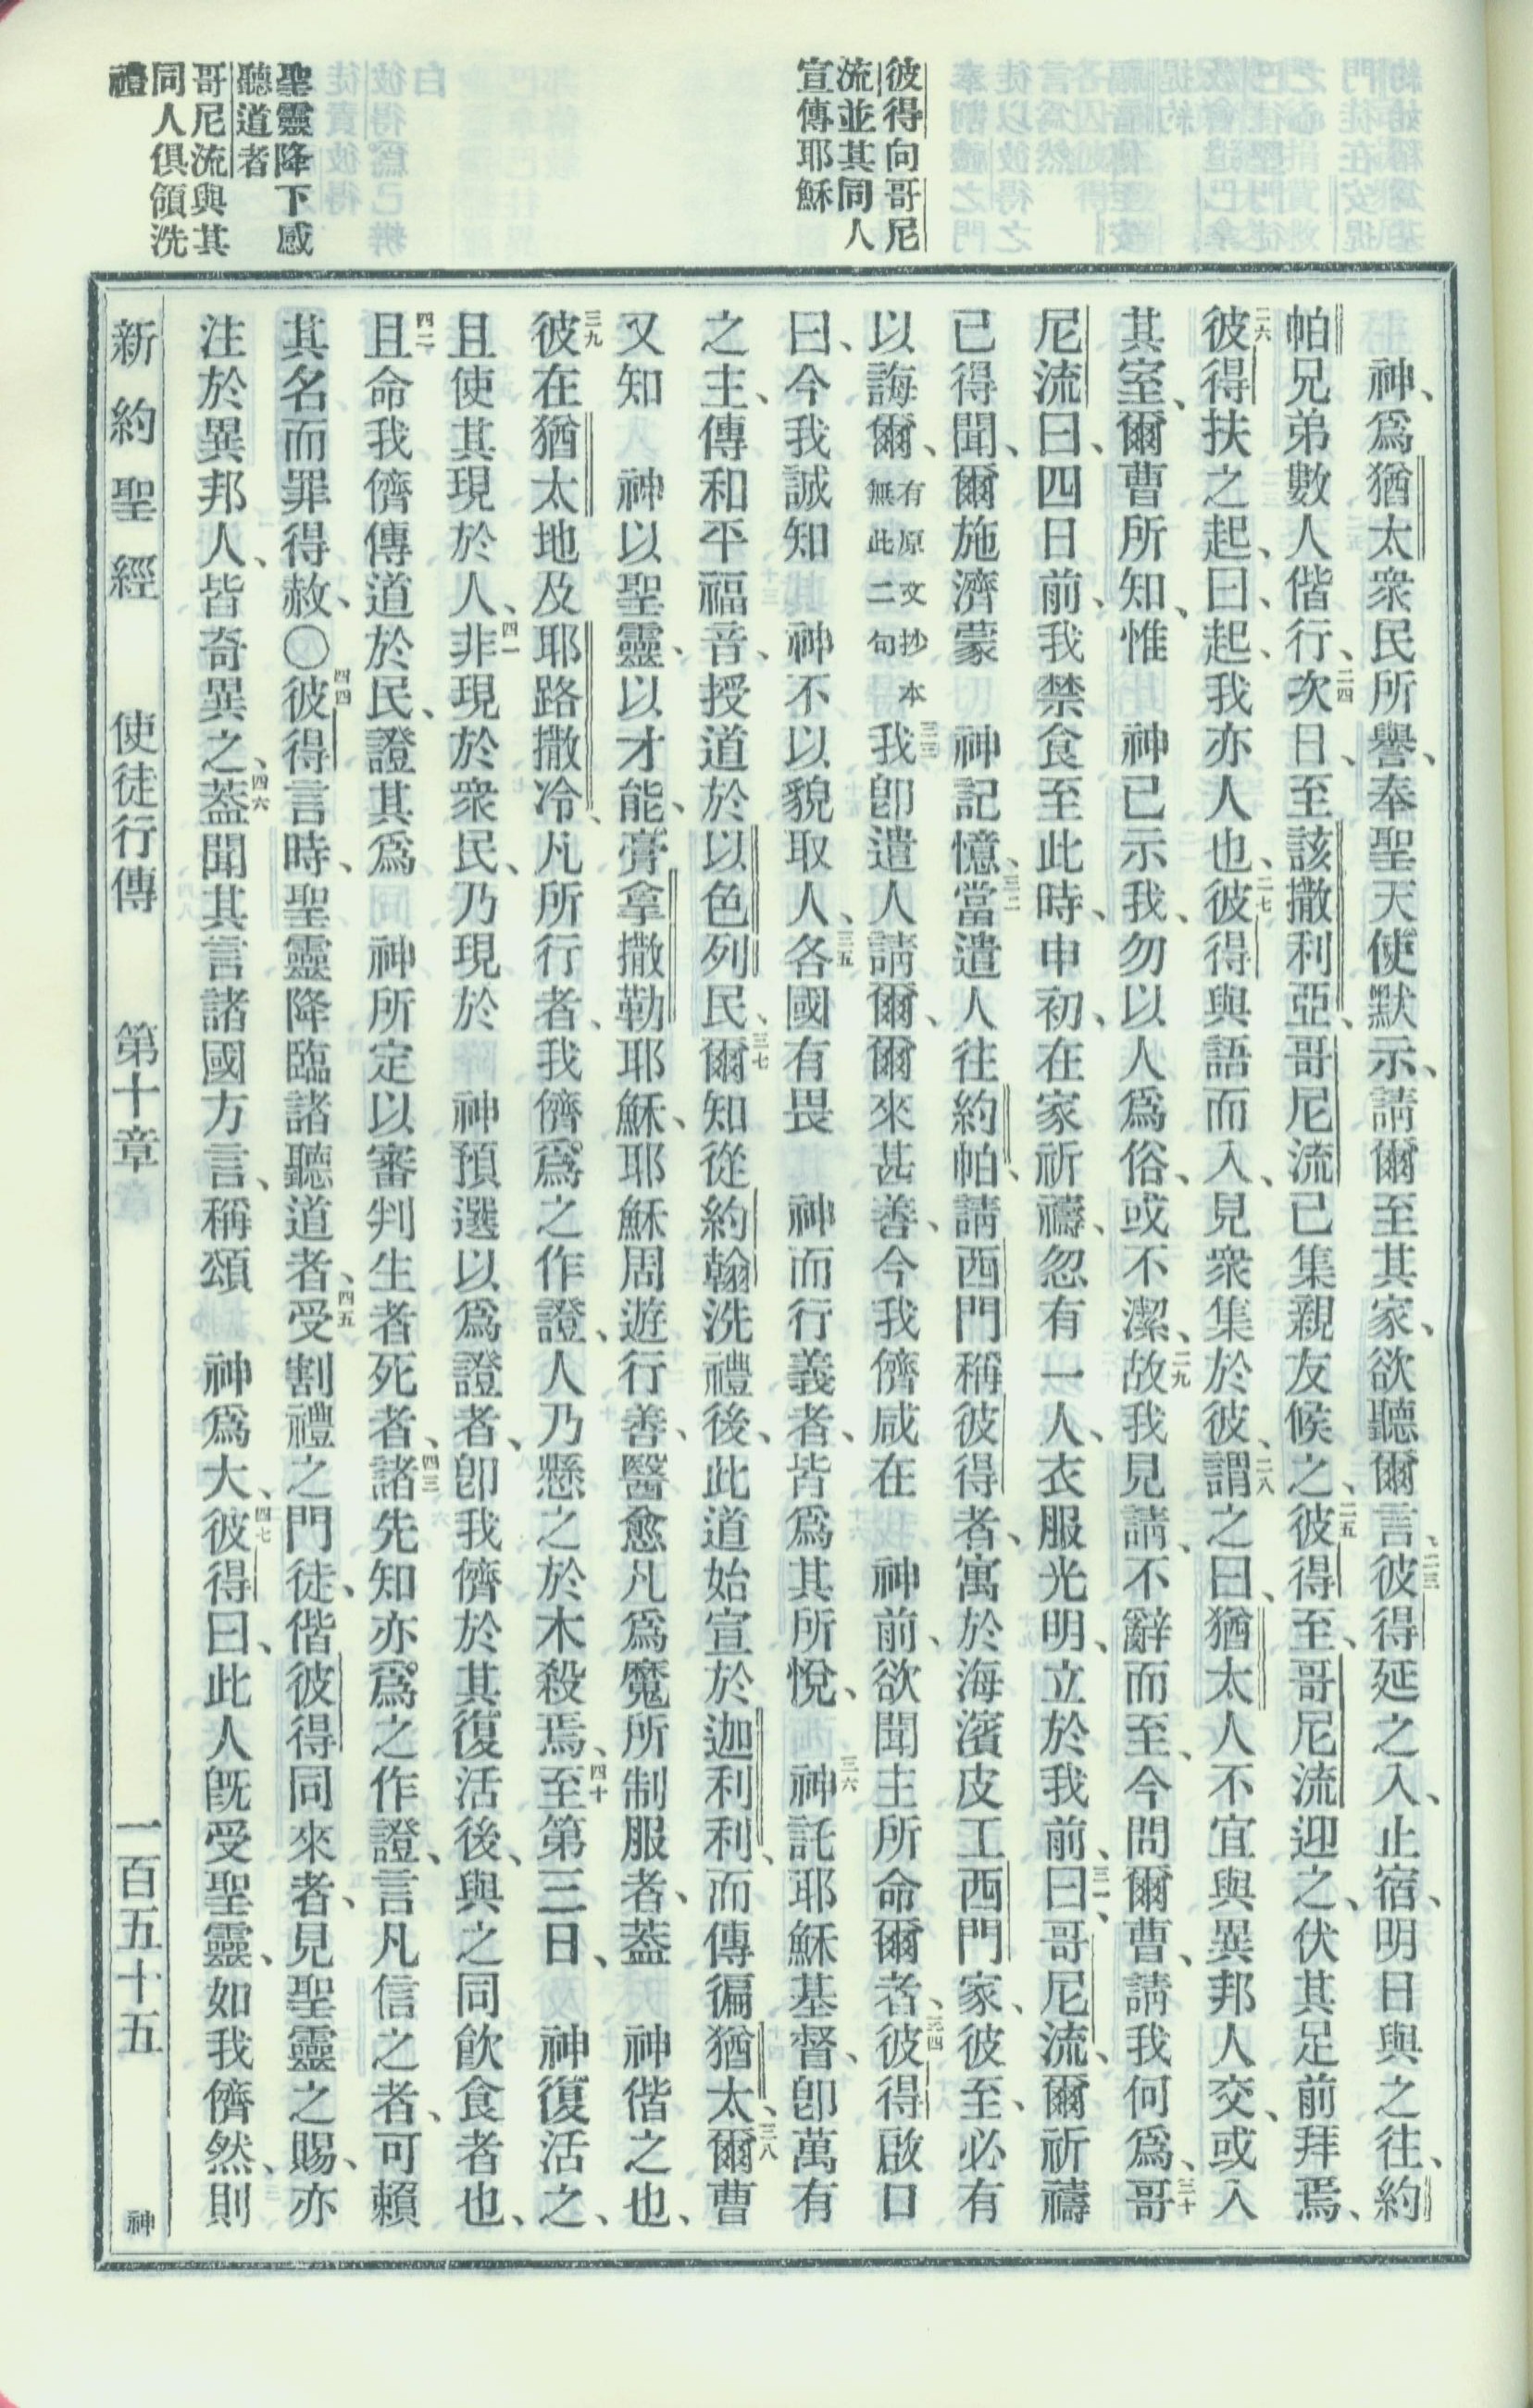 彼得向哥尼
流並其同人
宣傳耶穌
聖靈降下感
聽道者
哥尼流與其
同人俱領洗
禮
神、爲猶太衆民所譽、奉聖天使默示、請爾至其家、欲聽爾言、二三彼得延之入、止宿、明日與之往、約
帕兄弟數人偕行、二四次日、至該撒利亞、哥尼流已集親友候之、二五彼得至、哥尼流迎之、伏其足前拜焉、
二六彼得扶之起、曰、起、我亦人也、二七彼得與語而入、見衆集於彼、二八謂之曰、猶太人不宜與異邦人交、或入
其室、爾曹所知、惟 神已示我、勿以人爲俗、或不潔、二九故我見請、不辭而至、今問爾曹、請我何爲、三十哥
尼流曰、四日前、我禁食至此時、申初、在家祈禱、忽有一人、衣服光明、立於我前、三一曰、哥尼流、爾祈禱
已得聞、爾施濟蒙 神記憶、三二當遣人往約帕、請西門稱彼得者、寓於海濱皮工西門家、彼至、必有
以誨爾、有原文抄本無此二句 三三我卽遣人請爾、爾來甚善、今我儕咸在 神前、欲聞主所命爾者、三四彼得啟口
曰、今我誠知 神不以貌取人、三五各國有畏 神而行義者、皆爲其所悅、三六神託耶穌基督、卽萬有
之主、傳和平福音、授道於以色列民、三七爾知從約翰洗禮後、此道始宣於迦利利、而傳徧猶太、三八爾曹
又知 神以聖靈、以才能、膏拿撒勒耶穌、耶穌周遊行善、醫愈凡爲魔所制服者、蓋 神偕之也、
三九彼在猶太地及耶路撒冷、凡所行者、我儕爲之作證、人乃懸之於木殺焉、四十至第三日、 神復活之、
且使其現於人、四一非現於衆民、乃現於 神預選以爲證者、卽我儕於其復活後、與之同飲食者也、
四二且命我儕傳道於民、證其爲 神所定以審判生者死者、四三諸先知亦爲之作證、言凡信之者、可賴
其名而罪得赦、〇四四彼得言時、聖靈降臨諸聽道者、四五受割禮之門徒、偕彼得同來者、見聖靈之賜、亦
注於異邦人、皆奇異之、四六蓋聞其言諸國方言、稱頌 神爲大、四七彼得曰、此人旣受聖靈、如我儕然、則
新約聖經 使徒行傳 第十章 一百五十五 神